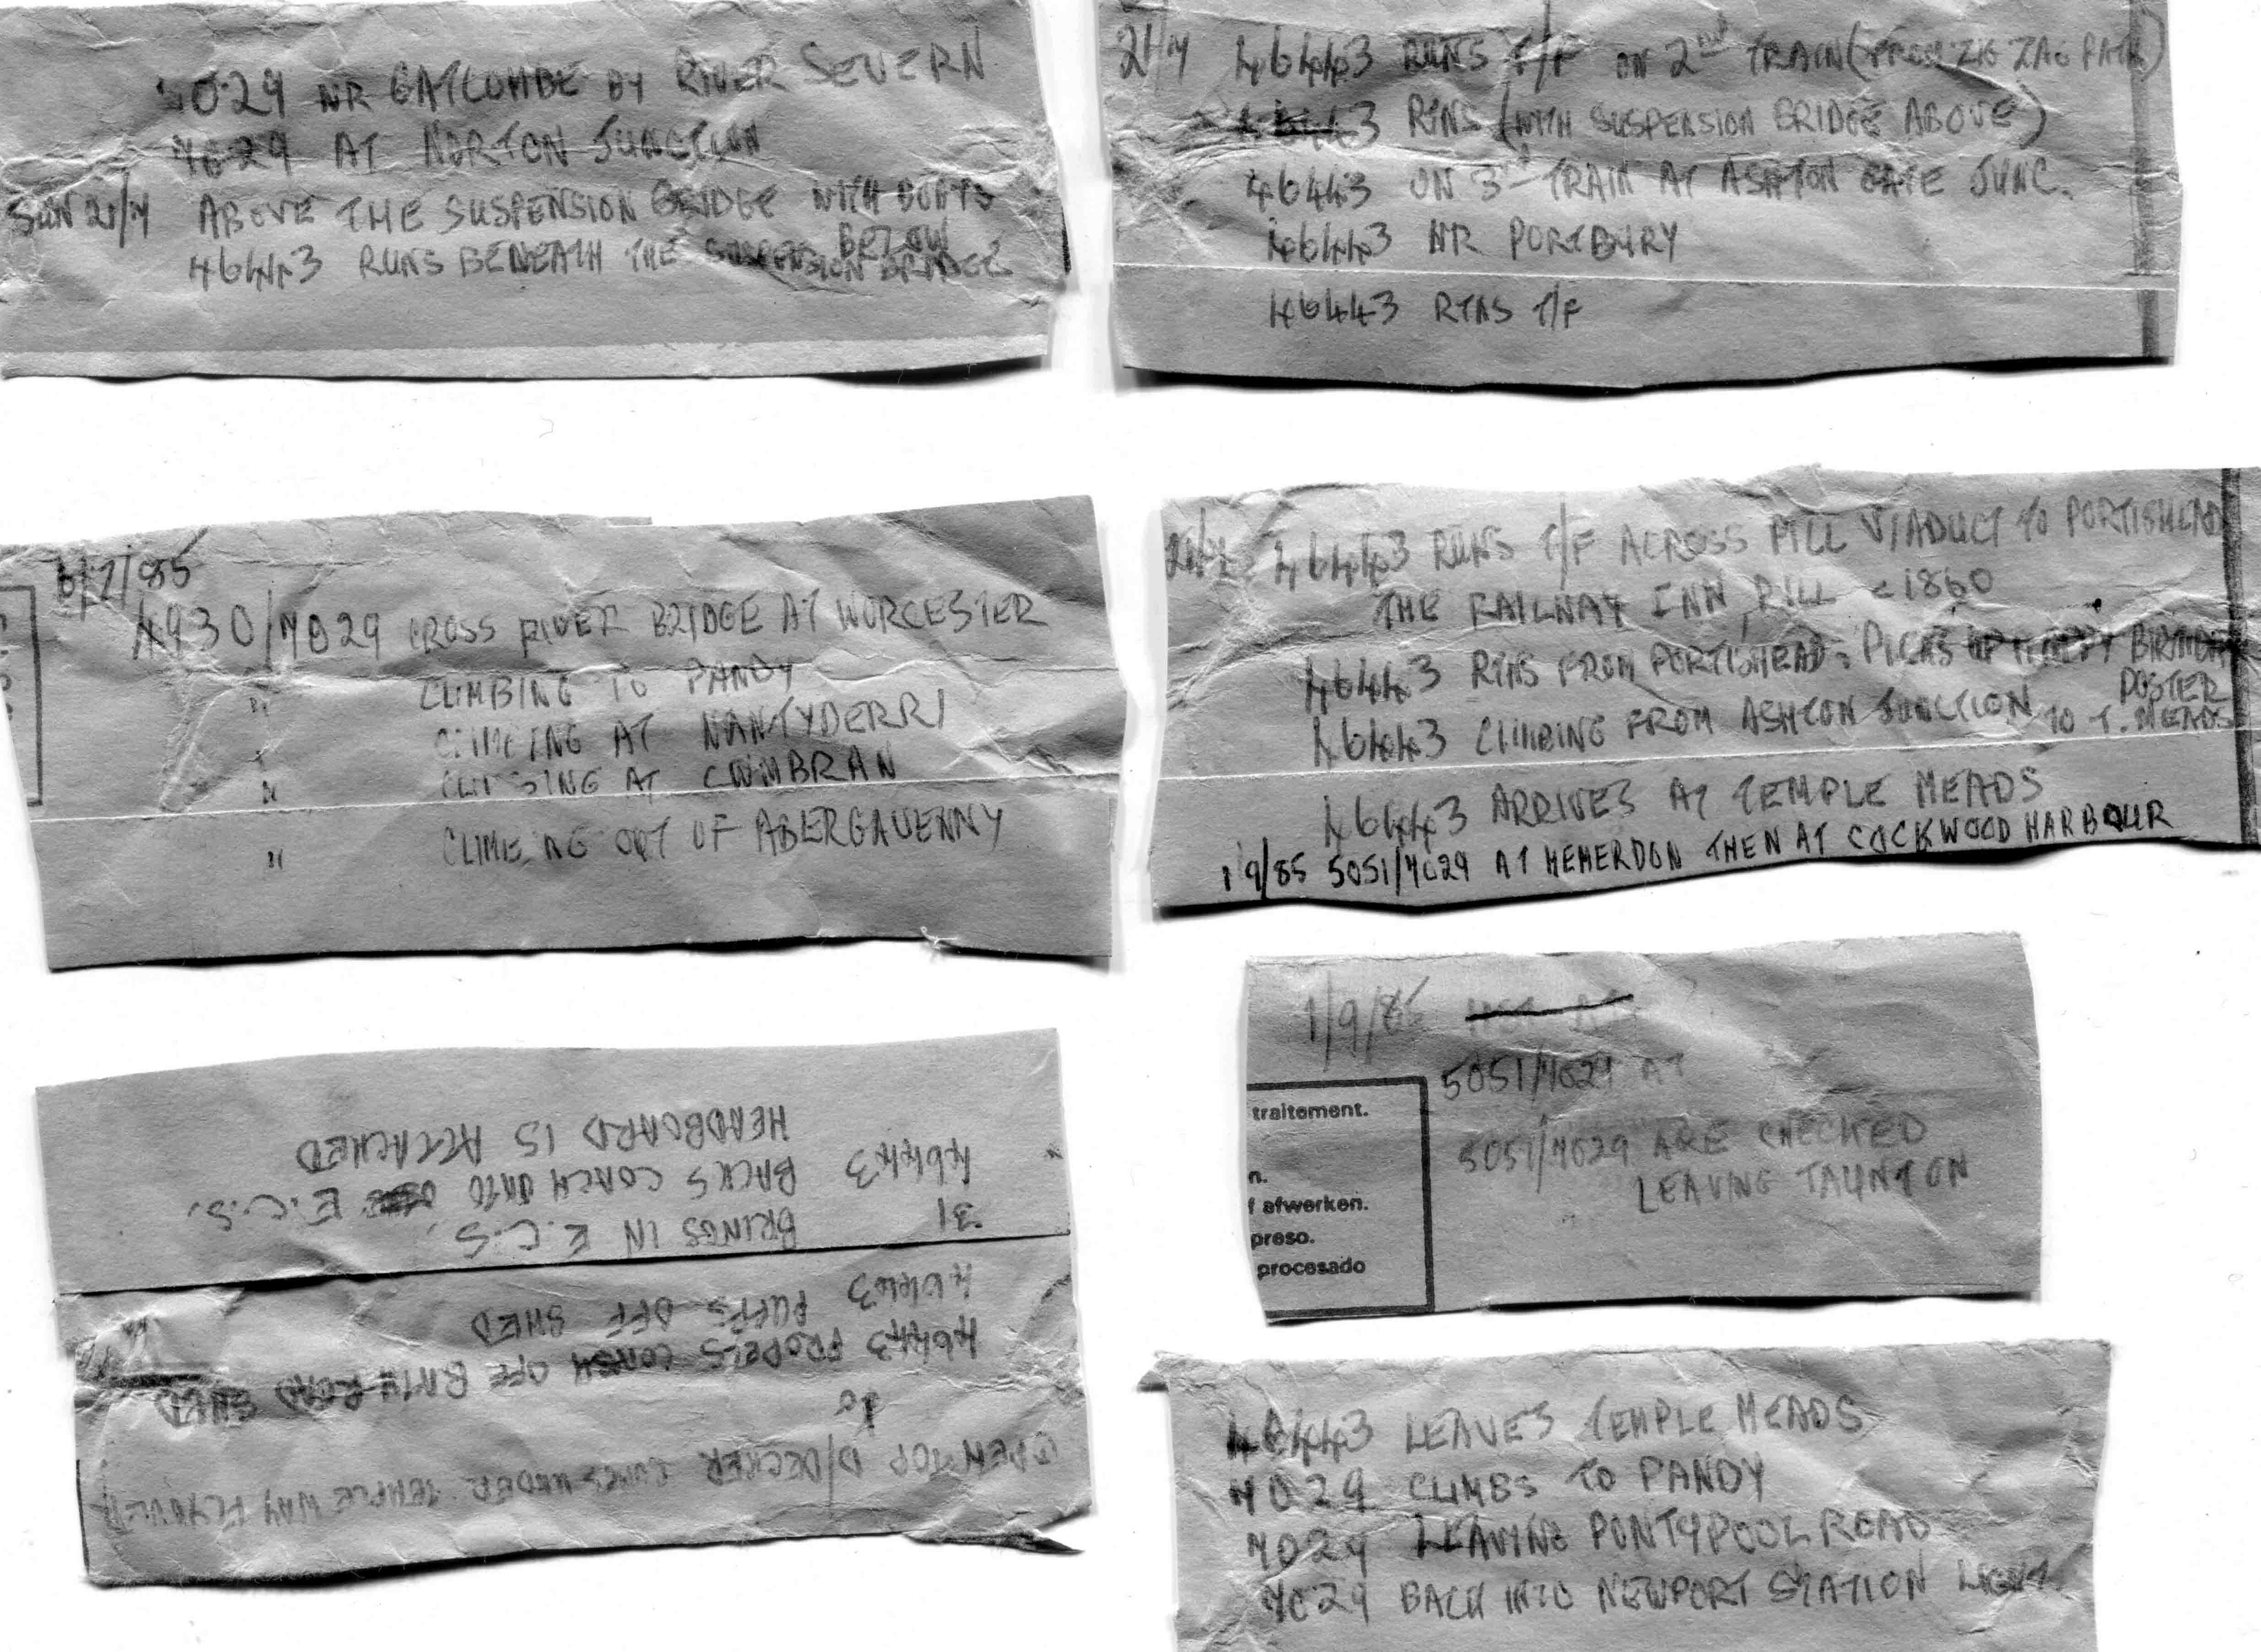 7029 NR GATCOMBE BY RIVER SEVERN
7029 AT NORTON JUNCTION
SUN 21/7 ABOVE THE SUSPENSION BRIDGE WITH BOATS BELOW
46443 RUNS BENEATH THE SUSPENSION BRIDGE
21/7 46443 RUNS T/F ON 2ND TRAIN (FROM ZIG ZAG PATH)
46443 RTNS (WITH SUSPENSION BRIDGE ABOVE)
46443 ON 3RD TRAIN AT ASHTON GATE JUNC.
46443 NR PORTBURY
46443 RTNS T/F
6/7/85
4930/7029 CROSS RIVER BRIDGE AT WORCESTER
" CLIMBING TO PANDY
" CLIMBING AT NANTYDERRI
" CLIMBING AT CWMBRAN
" CLIMBING OUT OF ABERGAVENNY
21/7 46443 RUNS T/F ACROSS PILL VIADUCT TO PORTISHEAD
THE RAILWAY INN, PILL c1860
46443 RTNS FROM PORTISHEAD: PICKS UP HAPPY BIRTHDAY POSTER
46443 CLIMBING FROM ASHTON JUNCTION TO T. MEADS
46443 ARRIVES AT TEMPLE MEADS
1/9/85 5051/7029 AT HEMERDON THEN AT COCKWOOD HARBOUR
1/9/85
5051/7029 AT
5051/7029 ARE CHECKED
LEAVING TAUNTON
traitement.
n.
f afwerken.
preso.
procesado
OPEN TOP D/DECKER COMES UNDER TEMPLE WAY FLYOVER
46443 PROPELS COACH OFF BATH ROAD SHED
46443 PUFFS OFF SHED
31 BRINGS IN E.C.S.
46443 BACKS COACH ONTO E.C.S.
HEADBOARD IS ATTACHED
46443 LEAVES TEMPLE MEADS
7029 CLIMBS TO PANDY
7029 LEAVING PONTYPOOL ROAD
7029 BACK INTO NEWPORT STATION LIGHT